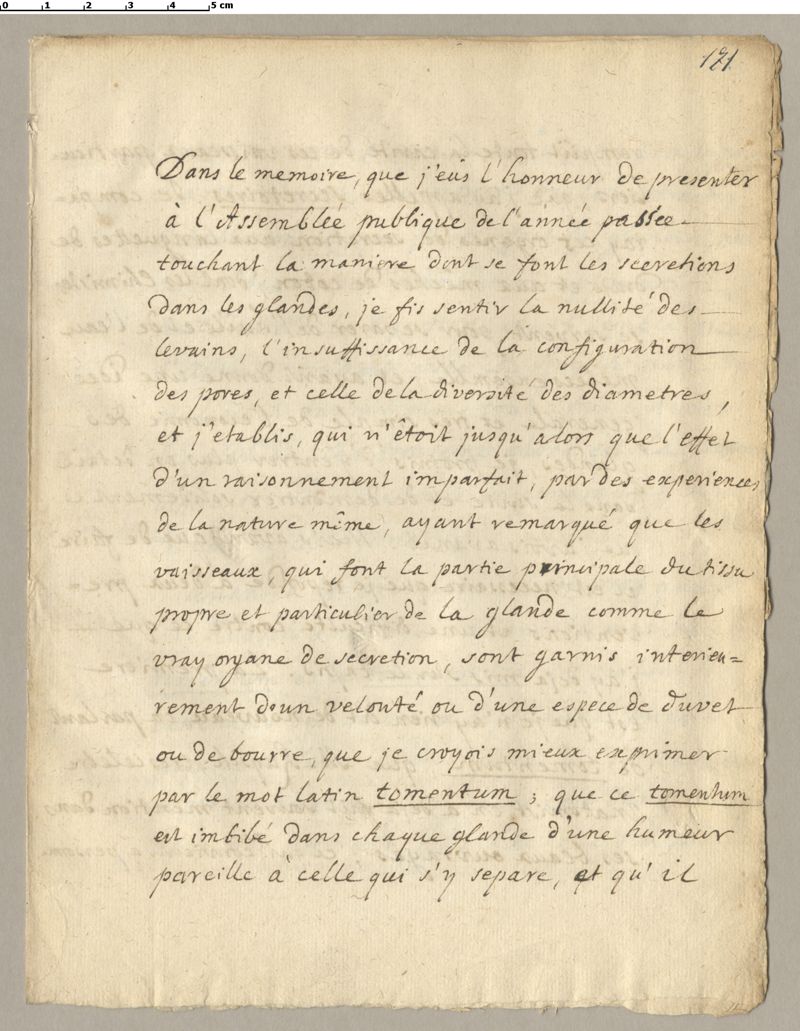 0 1 2 3 4 5 cm
121
Dans le memoire, que j'eus l'honneur de presenter
à l'Assemblée publique de l'année passée
touchant la maniere dont se font les secretions
dans les glandes, je fis sentir la nullité des
levains, l'insuffissance de la configuration
des pores, et celle de la diversité des diametres,
et j'etablis, qui n'êtoit jusqu'alors que l'effet
d'un raisonnement imparfait, par des experiences
de la nature même, ayant remarqué que les
vaisseaux, qui font la partie principale du tissu
propre et particulier de la glande comme le
vray organe de secretion, sont garnis interieu=
rement d'un velouté ou d'une espece de duvet
ou de bourre, que je croyois mieux exprimer
par le mot latin tomentum ; que ce tomentum
est imbibé dans chaque glande d'une humeur
pareille à celle qui s'y separe, et qu'il